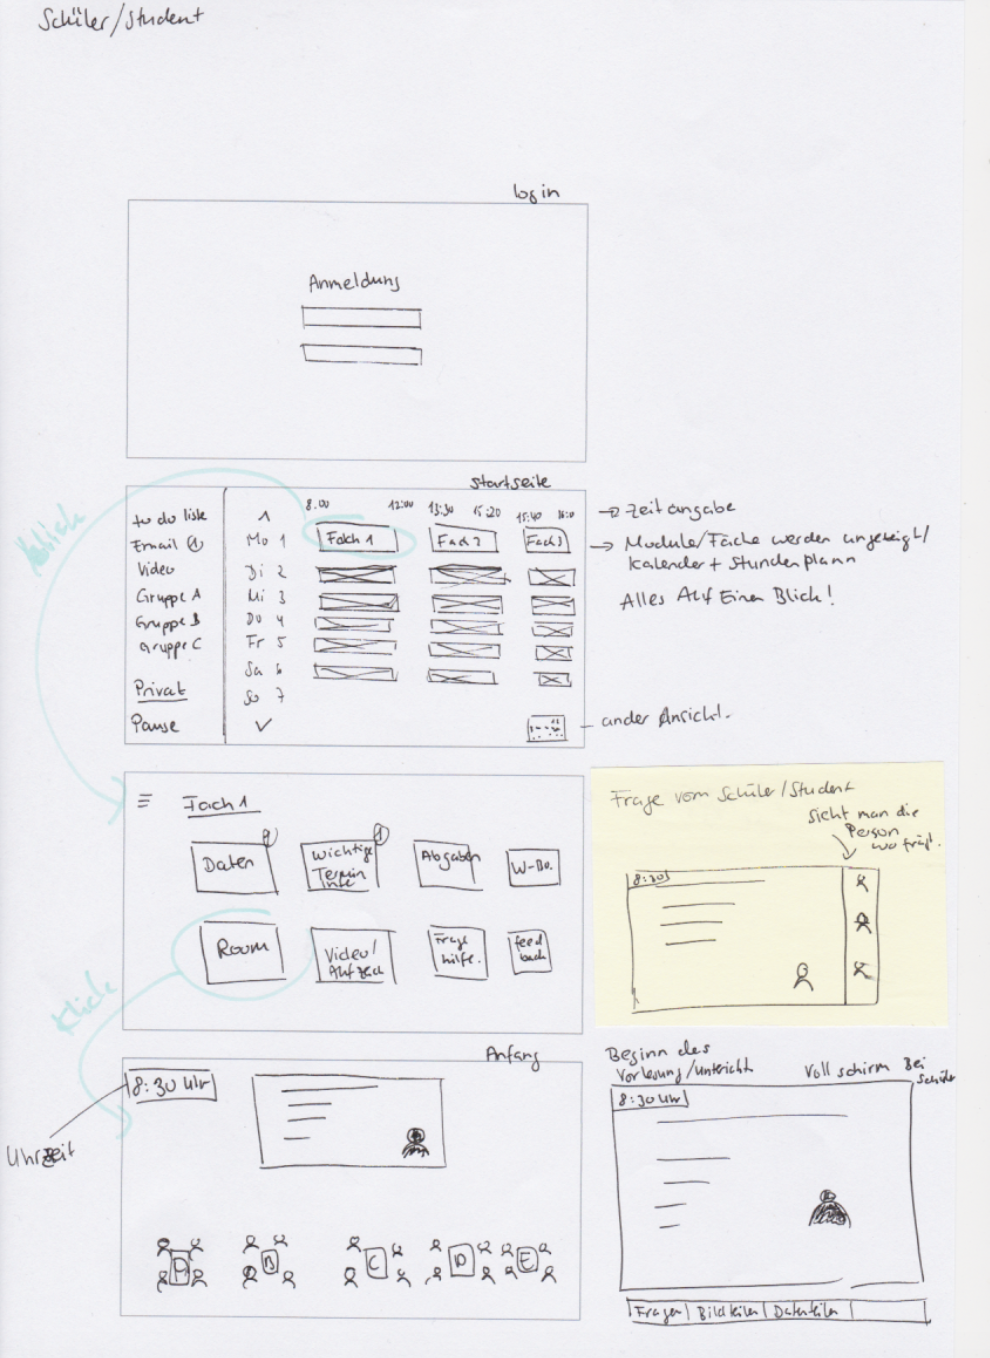 Schüler/Student
login
Anmeldung
Startseite
to do liste
Email 1
Video
Gruppe A
Gruppe B
Gruppe C
Privat
Pause
Mo 1
Di 2
Mi 3
Do 4
Fr 5
Sa 6
So 7
8.00 12:00 13:30 15:20 15:40
Fach 1 Fach 2 Fach 3
→ Zeitangabe
→ Module/Fäche werden angezeigt/
Kalender + Stundenplann
Alles Auf Einen Blick!
ander Ansicht.
Klick
Fach 1
Daten
Wichtige
Termin
Abgaben
W-Bo.
Room
Video/
Aufzeich
Frage
hilfe.
feed
back
Klick
Frage vom Schüler/Student
Sicht man die
Person
wo frägt.
8:30
Anfang
8:30 Uhr
Uhrzeit
A B C D E
Beginn des
Vorlesung/Unterricht
Voll schirm Bei
Schüler
8:30 Uhr
Fragen | Bildteilen | Datenteilen |